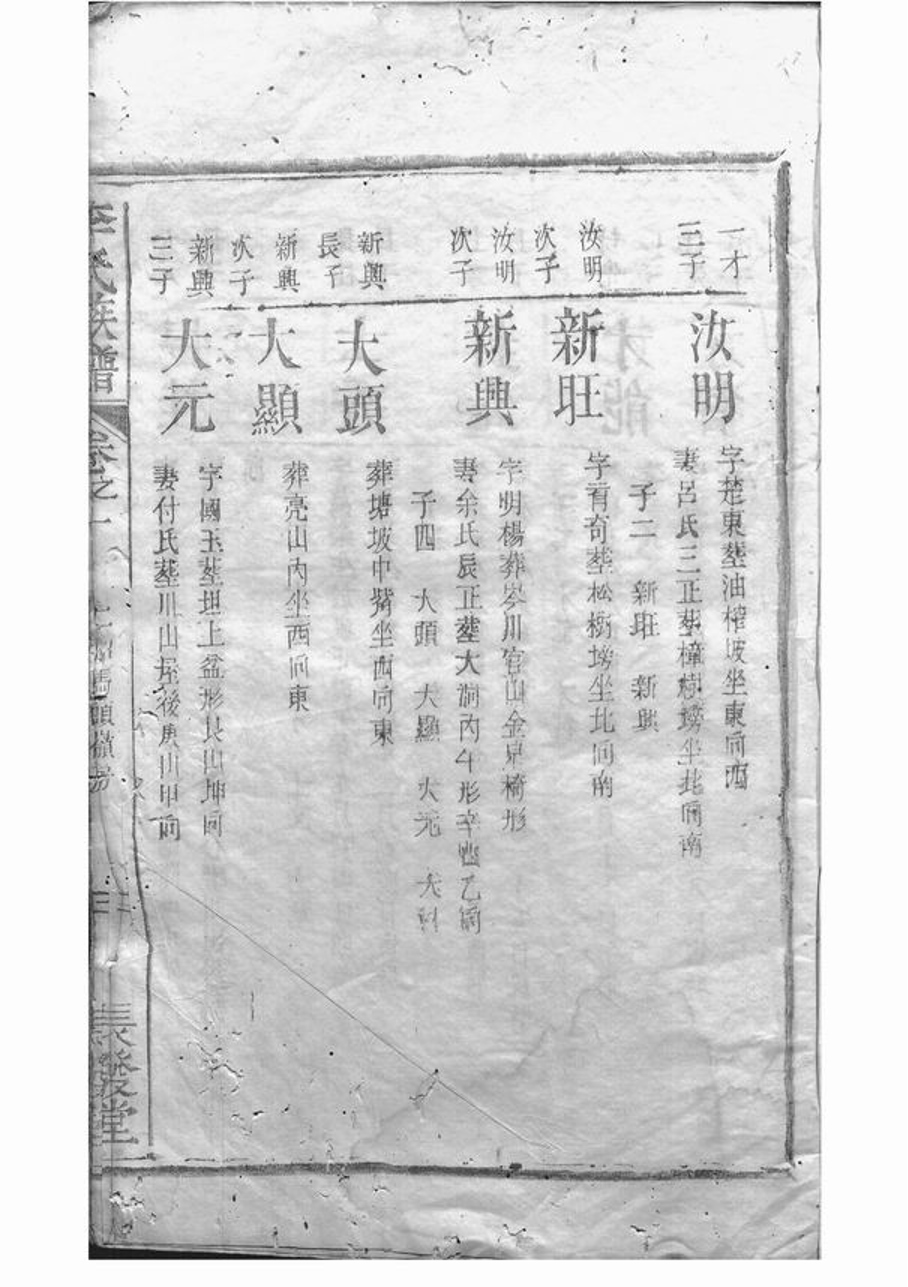 一才
三子
汝明
字楚東塟油榨坡坐東向西
妻呂氏三正塟樟樹塝坐北向南
子二 新旺 新興
汝明
次子
新旺
字育奇塟松樹塝坐北向南
汝明
次子
新興
字明楊葬岑川官山金泉椅形
妻余氏辰正塟大洞内斗形辛山乙向
子四 大頭 大顯 大元 大
新興
長子
大頭
葬塘坡中觜坐西向東
新興
次子
大顯
葬亮山内坐西向東
新興
三子
大元
字國玉塟坦上盆形艮山坤向
妻付氏塟川山屋後庚山甲向
李氏族譜
卷之一
長發堂